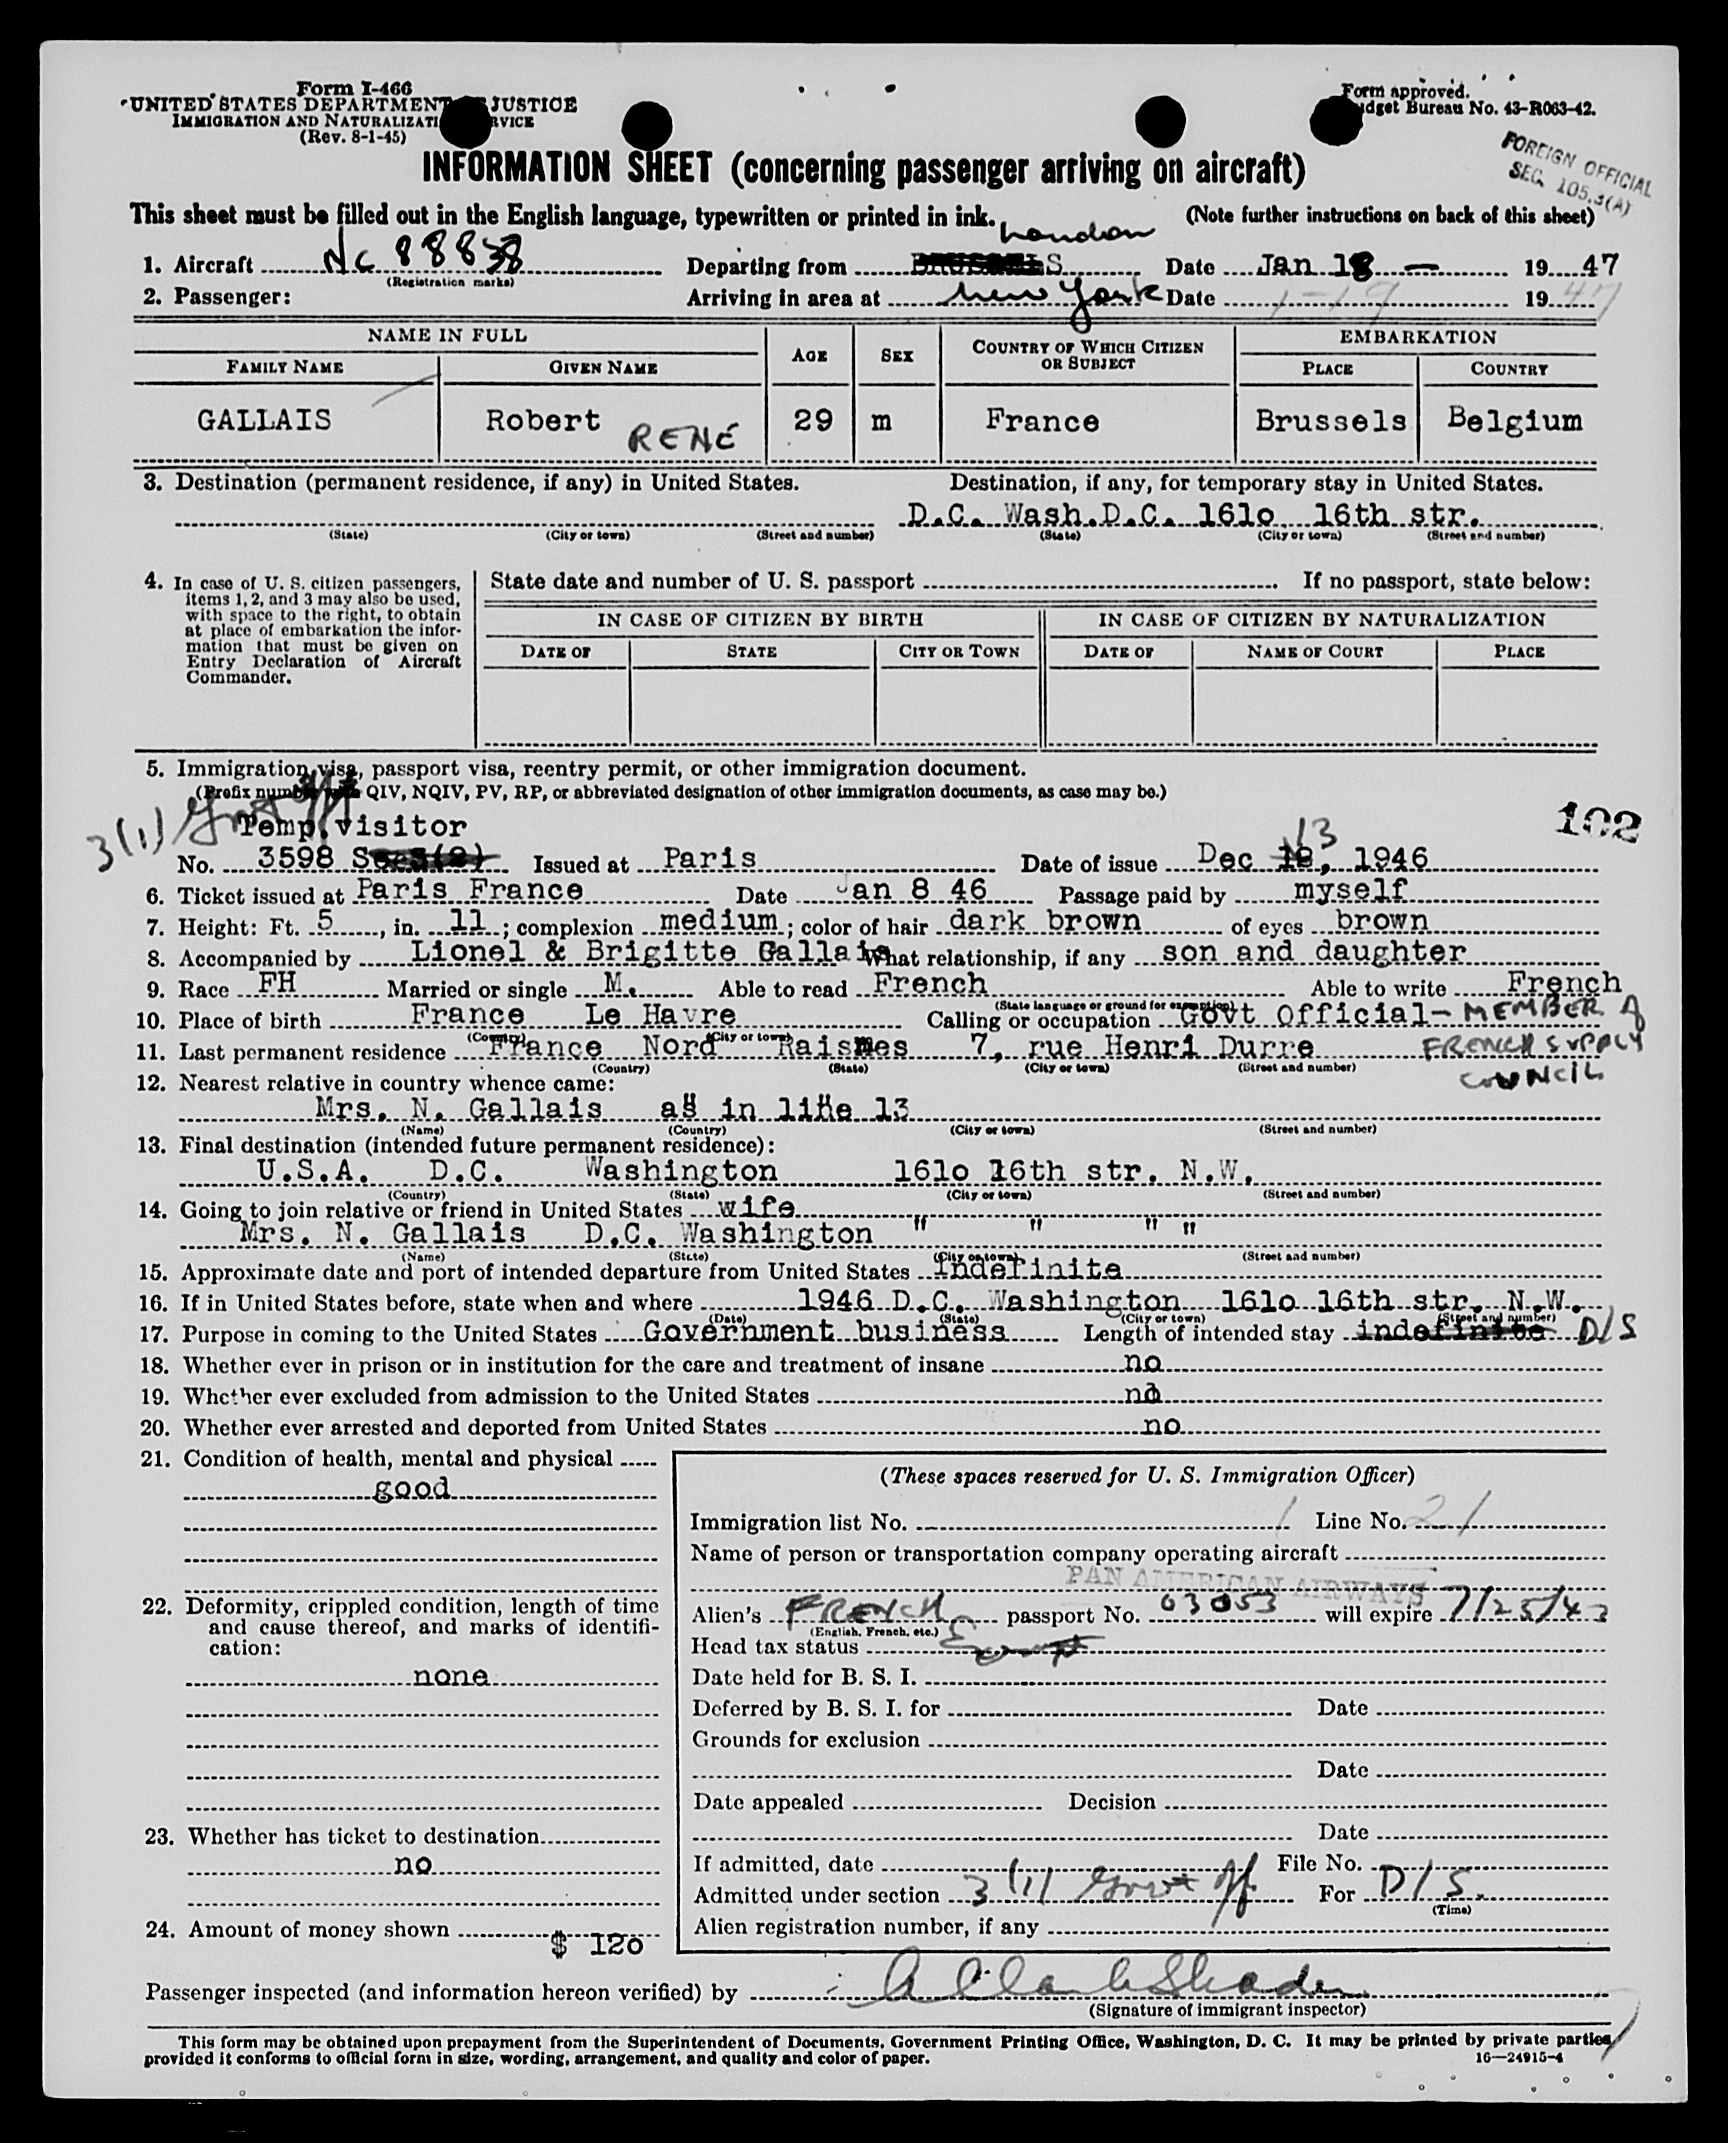 Form I-466
UNITED STATES DEPARTMENT JUSTICE
IMMIGRATION AND NATURALIZATI RVICE
(Rev. 8-1-45)
Form approved.
dget Bureau No. 43-R063-42.
FOREIGN OFFICIAL
SEC. 105.3(A)
INFORMATION SHEET (concerning passenger arriving on aircraft)
This sheet must be filled out in the English language, typewritten or printed in ink. (Note further instructions on back of this sheet)
London
1. Aircraft Nc 88838 Departing from BRUSSELS Date Jan 18 — 1947
(Registration marks)
2. Passenger: Arriving in area at New York Date 1-19 1947
NAME IN FULL AGE SEX COUNTRY OF WHICH CITIZEN OR SUBJECT EMBARKATION
FAMILY NAME GIVEN NAME PLACE COUNTRY
GALLAIS Robert RENÉ 29 m France Brussels Belgium
3. Destination (permanent residence, if any) in United States. Destination, if any, for temporary stay in United States.
D.C. Wash.D.C. 161o 16th str.
(State) (City or town) (Street and number) (State) (City or town) (Street and number)
4. In case of U. S. citizen passengers, items 1, 2, and 3 may also be used, with space to the right, to obtain at place of embarkation the information that must be given on Entry Declaration of Aircraft Commander.
State date and number of U. S. passport If no passport, state below:
IN CASE OF CITIZEN BY BIRTH IN CASE OF CITIZEN BY NATURALIZATION
DATE OF STATE CITY OR TOWN DATE OF NAME OF COURT PLACE
5. Immigration visa, passport visa, reentry permit, or other immigration document.
(Prefix number with QIV, NQIV, PV, RP, or abbreviated designation of other immigration documents, as case may be.)
3(1) Govt Off
Temp.visitor
102
13
No. 3598 Sec 3(2) Issued at Paris Date of issue Dec 12, 1946
6. Ticket issued at Paris France Date Jan 8 46 Passage paid by myself
7. Height: Ft. 5, in. 11; complexion medium; color of hair dark brown of eyes brown
8. Accompanied by Lionel & Brigitte Gallais What relationship, if any son and daughter
9. Race FH Married or single M. Able to read French Able to write French
(State language or ground for exemption)
10. Place of birth France Le Havre Calling or occupation Govt Official - MEMBER of
(Country) (City or town)
11. Last permanent residence France Nord Raismes 7, rue Henri Durre FRENCH SUPPLY
(Country) (State) (City or town) (Street and number)
COUNCIL
12. Nearest relative in country whence came:
Mrs. N. Gallais as in line 13
(Name) (Country) (City or town) (Street and number)
13. Final destination (intended future permanent residence):
U.S.A. D.C. Washington 161o 16th str. N.W.
(Country) (State) (City or town) (Street and number)
14. Going to join relative or friend in United States wife
Mrs. N. Gallais D.C. Washington " " " "
(Name) (State) (City or town) (Street and number)
15. Approximate date and port of intended departure from United States Indefinite
16. If in United States before, state when and where 1946 D.C. Washington 161o 16th str. N.W.
(Date) (State) (City or town) (Street and number)
17. Purpose in coming to the United States Government business Length of intended stay indefinite D/S
18. Whether ever in prison or in institution for the care and treatment of insane no
19. Whether ever excluded from admission to the United States no
20. Whether ever arrested and deported from United States no
21. Condition of health, mental and physical
good
22. Deformity, crippled condition, length of time and cause thereof, and marks of identification:
none
23. Whether has ticket to destination
no
24. Amount of money shown $ 12o
(These spaces reserved for U. S. Immigration Officer)
Immigration list No. 1 Line No. 21
Name of person or transportation company operating aircraft
PAN AMERICAN AIRWAYS
Alien's FRENCH passport No. 03053 will expire 7/25/47
(English, French, etc.)
Head tax status Exempt
Date held for B. S. I.
Deferred by B. S. I. for Date
Grounds for exclusion
Date
Date appealed Decision
Date
If admitted, date File No.
Admitted under section 3(1) Govt Off For D/S.
(Time)
Alien registration number, if any
Passenger inspected (and information hereon verified) by
(Signature of immigrant inspector)
This form may be obtained upon prepayment from the Superintendent of Documents, Government Printing Office, Washington, D. C. It may be printed by private parties
provided it conforms to official form in size, wording, arrangement, and quality and color of paper. 16—24915-4